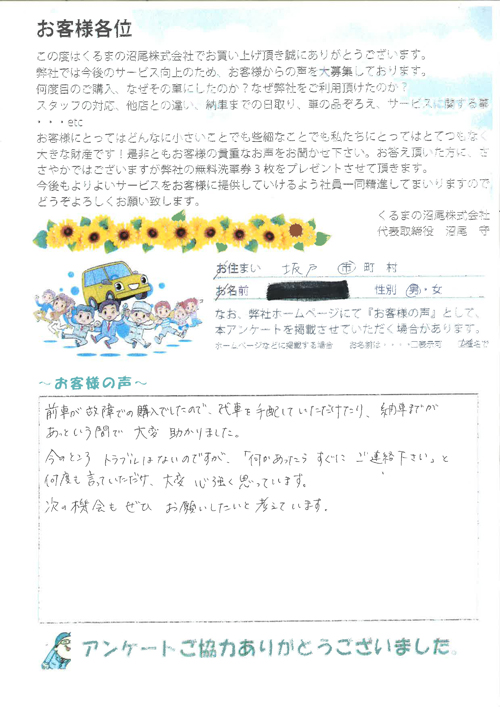 お客様各位
この度はくるまの沼尾株式会社でお買い上げ頂き誠にありがとうございます。
弊社では今後のサービス向上のため、お客様からの声を大募集しております。
何度目のご購入、なぜその車にしたのか？なぜ弊社をご利用頂けたのか？
スタッフの対応、他店との違い、納車までの日取り、車の品ぞろえ、サービスに関する事
・・・etc
お客様にとってはどんなに小さいことでも些細なことでも私たちにとってはとてつもなく
大きな財産です！是非ともお客様の貴重なお声をお聞かせ下さい。お答え頂いた方に、さ
さやかではございますが弊社の無料洗車券３枚をプレゼントさせて頂きます。
今後もよりよいサービスをお客様に提供していけるよう社員一同精進してまいりますので、
どうぞよろしくお願い致します。
くるまの沼尾株式会社
代表取締役　沼尾　守
お住まい　坂戸　市 町 村
お名前　性別　男・女
なお、弊社ホームページにて『お客様の声』として、
本アンケートを掲載させていただく場合があります。
ホームページなどに掲載する場合　お名前は・・・・
～お客様の声～
前車が故障での購入でしたので、代車を手配していただけたり、納車までが
あっという間で大変助かりました。
今のところトラブルはないのですが、「何かあったらすぐにご連絡下さい」と
何度も言っていただけ、大変心強く思っています。
次の機会もぜひお願いしたいと考えています。
アンケートご協力ありがとうございました。